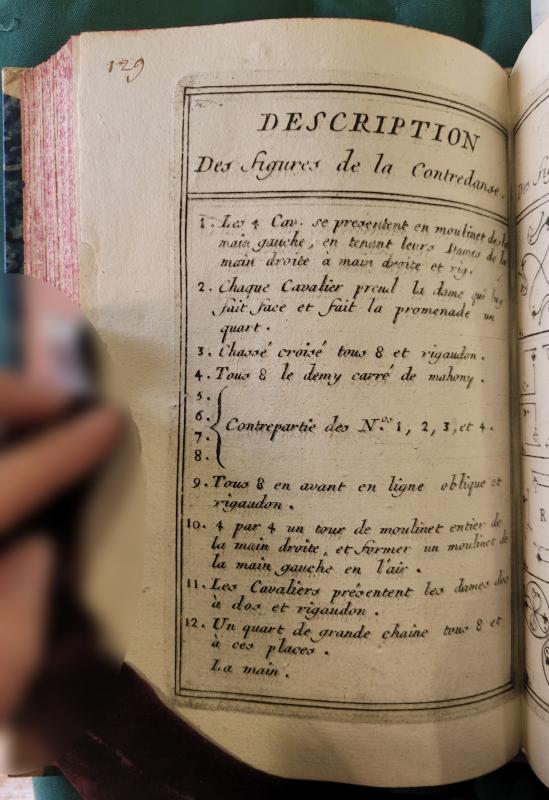 129
DESCRIPTION
Des figures de la Contredanse.
1. Les 4 Cav. se presentent en moulinet de la
main gauche, en tenant leurs Dames de la
main droite à main droite et rig.
2. Chaque Cavalier prend la dame qui luy
fait face et fait la promenade un
quart.
3. Chassé croisé tous 8 et rigaudon.
4. Tous 8 le demy carré de mahony.
5.
6.
7.
8.
Contrepartie des Nos. 1, 2, 3, et 4.
9. Tous 8 en avant en ligne oblique et
rigaudon.
10. 4 par 4 un tour de moulinet entier de
la main droite, et former un moulinet de
la main gauche en l'air.
11. Les Cavaliers présentent les dames dos
à dos et rigaudon.
12. Un quart de grande chaine tous 8 et
à ces places.
La main.